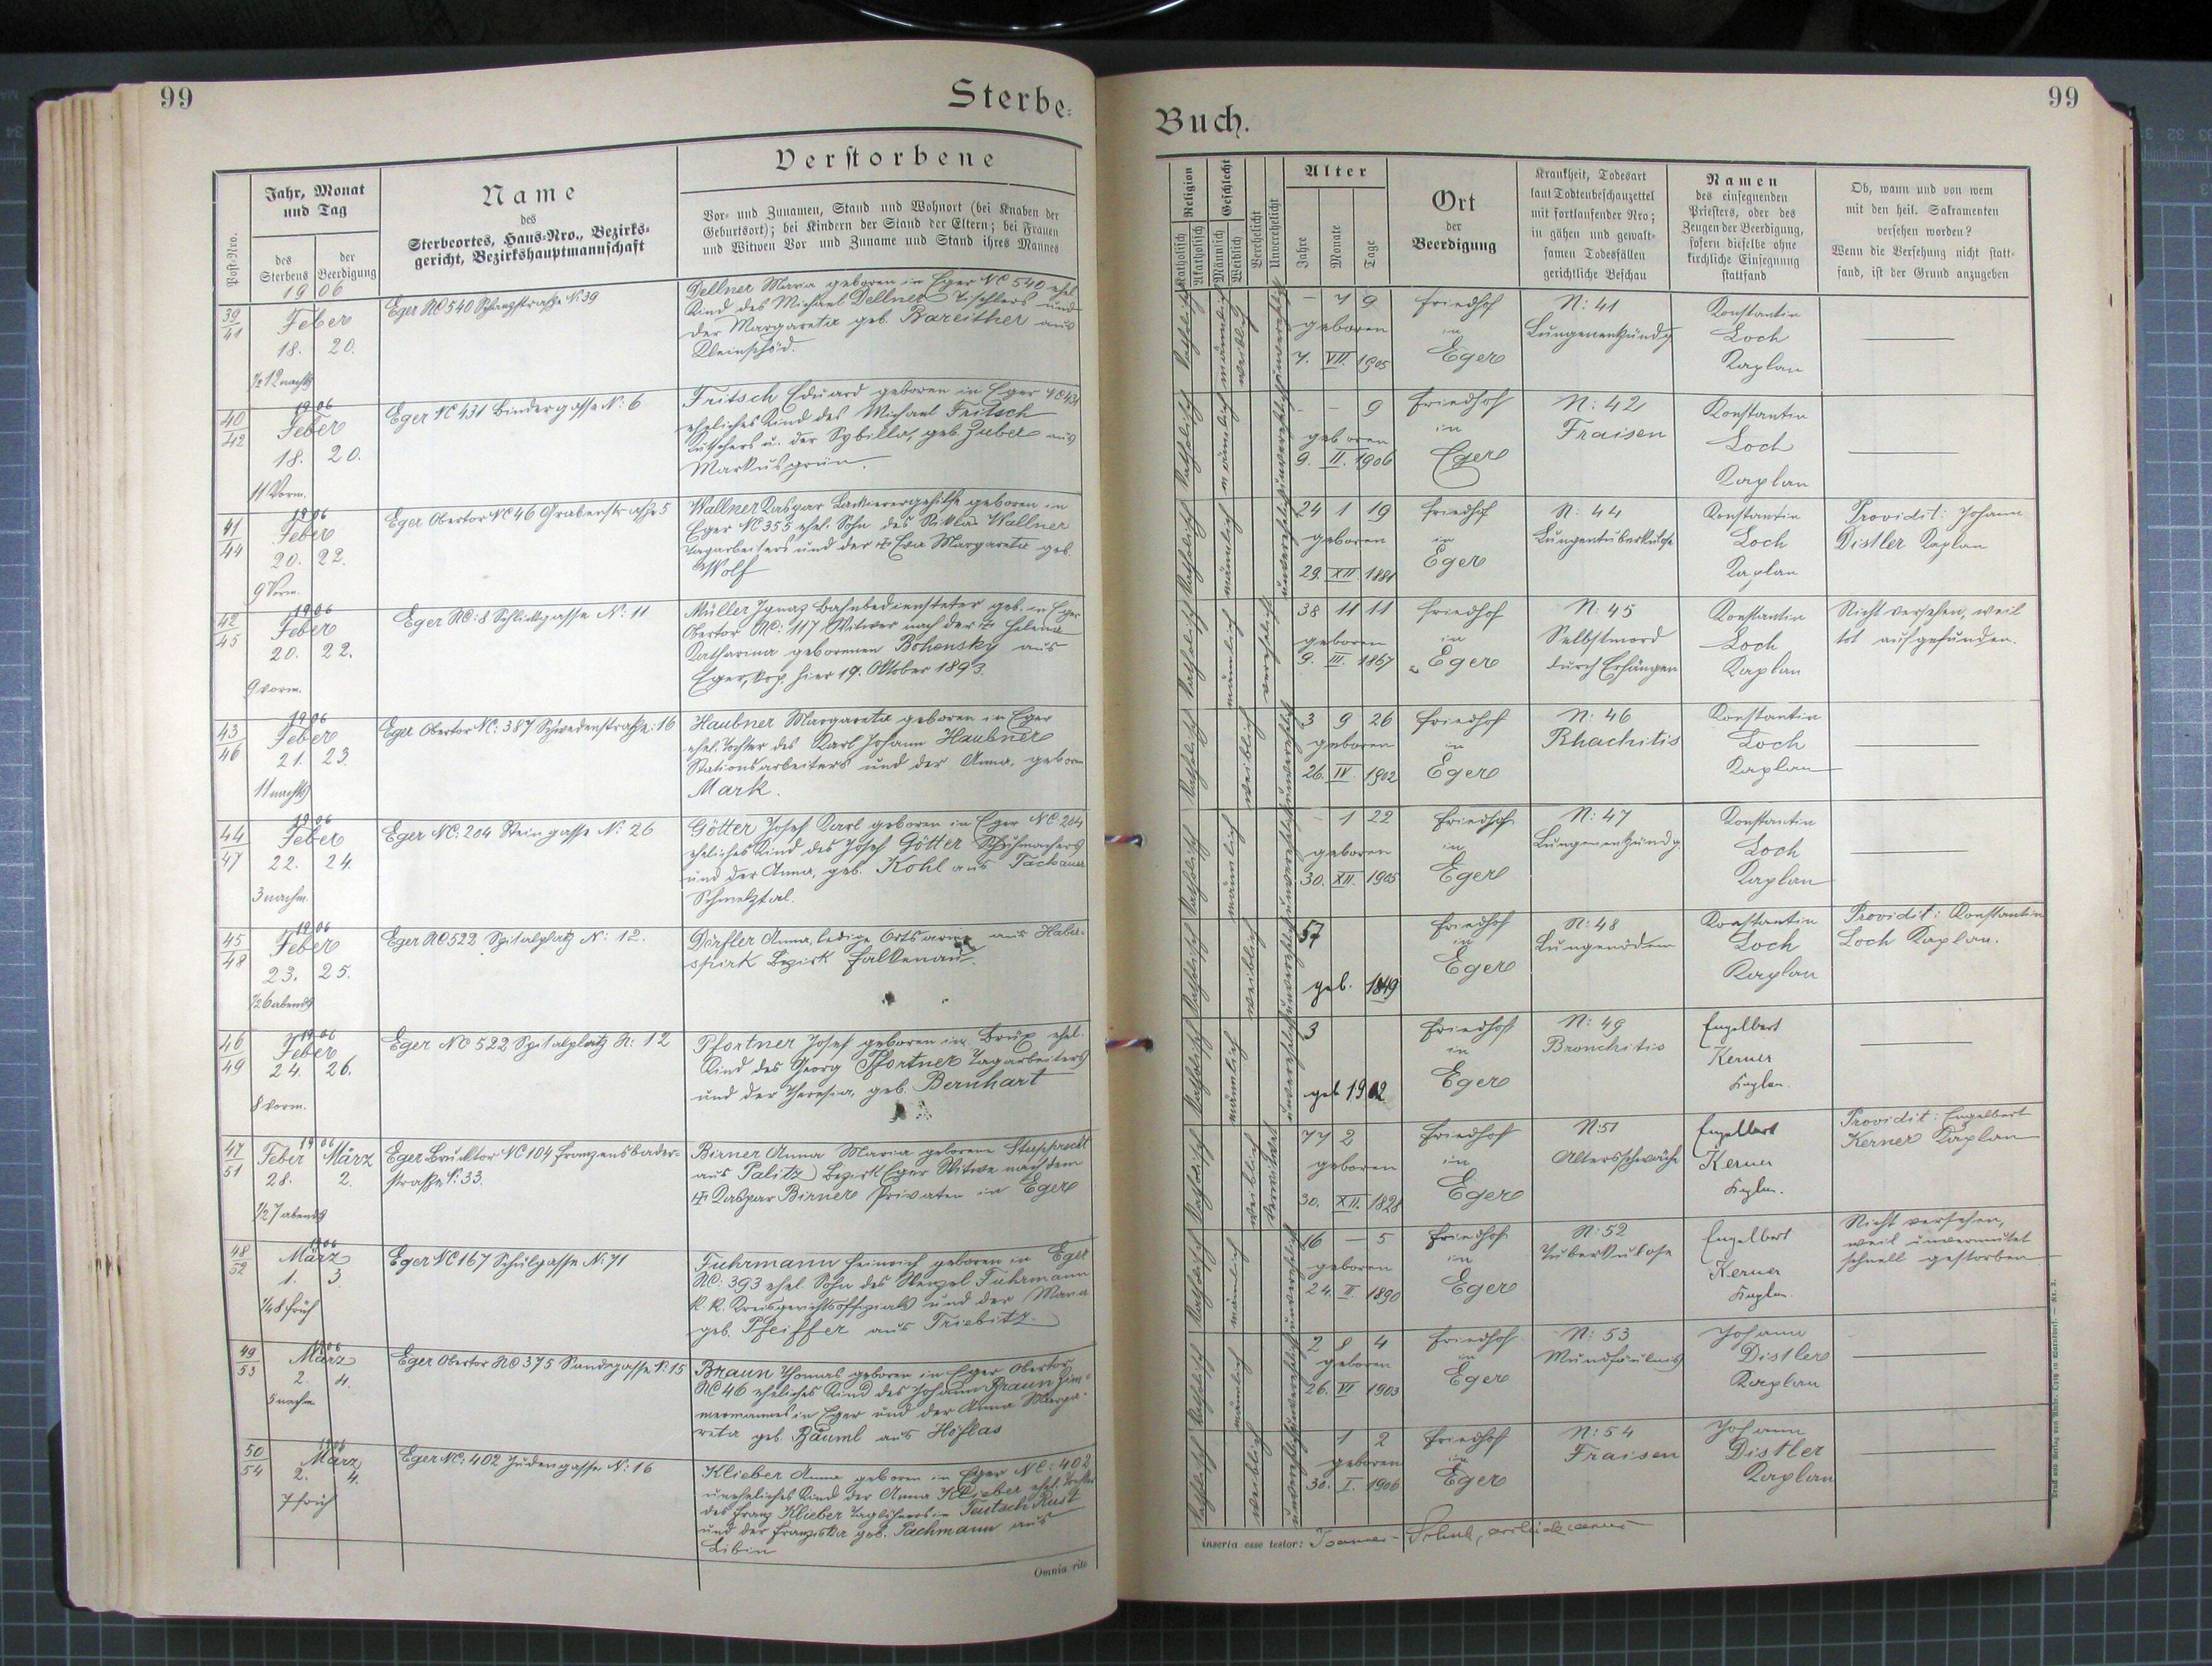 99
Sterbe-
Post-Nro.
Jahr, Monat
und Tag
des
Sterbens
der
Beerdigung
Name
des
Sterbeortes, Haus-Nro., Bezirks-
gericht, Bezirkshauptmannschaft
Verstorbene
Vor- und Zunamen, Stand und Wohnort (bei Knaben der
Geburtsort); bei Kindern der Stand der Eltern; bei Frauen
und Witwen Vor und Zuname und Stand ihres Mannes
39
41
1906
Feber
18. 20.
½12 nachts
Eger NC 540 Schanzstraße N: 39
Dellner Maria geboren in Eger NC 540 ehel.
Kind des Michael Dellner Tischlers und
der Margareta geb. Bareither aus
Kleinschöd.
40
42
1906
Feber
18. 20.
11 Vorm.
Eger NC 431 Bindergasse N: 6
Fritsch Eduard geboren in Eger NC 431
eheliches Kind des Michael Fritsch
Kutschers u. der Sybilla, geb. Zuber aus
Markusgrün.
41
44
1906
Feber
20. 22.
9 Vorm.
Eger Obertor NC 46 Grabenstraße 5
Wallner Kaspar Lackierergehilfe geboren in
Eger NC 355 ehel. Sohn des Niklas Wallner
Tagarbeiters und der Eva Margareta geb.
Wolf
42
45
1906
Feber
20. 22.
9 vorm.
Eger NC: 8 Schlickgasse N: 11
Müller Ignaz Bahnbediensteter geb. in Eger
Obertor NC: 117 Witwer nach der Helena
Katharina geborenen Bohensky aus
Eger, kop. hier 19. Oktober 1893.
43
46
1906
Feber
21. 23.
11 nachts
Eger Obertor NC: 387 Schwedenstraße: 16
Haubner Margareta geboren in Eger
ehel. Tochter des Karl Johann Haubner
Stationsarbeiters und der Anna, geboren
Mark.
44
47
1906
Feber
22. 24.
3 nachm.
Eger NC: 204 Steingasse N: 26
Götter Josef Karl geboren in Eger NC. 204
eheliches Kind des Josef Götter Schuhmachers
und der Anna, geb. Kohl aus Tachauer
Schmelztal.
45
48
1906
Feber
23. 25.
½6 abends
Eger NC 522 Spitalplatz N: 12.
Dörfler Anna, ledige Ortsarme aus Haber-
spirk Bezirk Falkenau.
46
49
1906
Feber
24. 26.
8 vorm.
Eger NC 522 Spitalplatz N: 12
Pfortner Josef geboren in Brüx ehel.
Kind des Georg Pfortner Tagarbeiters
und der Theresia, geb. Bernhart
47
51
1906
Feber März
28. 2.
½7 abends
Eger Brucktor NC 104 Franzensbader-
straße N: 33.
Birner Anna Maria geborene Stupprecht
aus Palitz Bezirk Eger Witwe nach dem
Kaspar Birner Privaten in Eger
48
52
1906
März
1. 3
¼8 früh
Eger NC 167 Schulgasse N: 71
Fuhrmann Heinrich geboren in Eger
NC: 393 ehel. Sohn des Wenzel Fuhrmann
k. k. Kreisgerichtsoffizials und der Maria
geb. Pfeiffer aus Triebitz.
49
53
1906
März
2. 4.
5 nachm
Eger Obertor NC 375 Sandgasse N: 15
Braun Thomas geboren in Eger Obertor
NC 46 eheliches Kind des Johann Braun Zim-
mermannes in Eger und der Anna Marga-
reta geb. Bäuml aus Höflas
50
54
1906
März
2. 4.
7 früh
Eger NC: 402 Judengasse N: 16
Klieber Anna geboren in Eger NC: 402
uneheliches Kind der Anna Klieber ehel. Tochter
des Franz Klieber Taglöhners in Teutsch Rust
und der Franziska geb. Pachmann aus
Libin
Omnia rite
99
Buch.
Religion
Katholisch
Akatholisch
Geschlecht
Männlich
Weiblich
Verehelicht
Unverehelicht
Alter
Jahre
Monate
Tage
Ort
der
Beerdigung
Krankheit, Todesart
laut Todtenbeschauzettel
mit fortlaufender Nro;
in gähen und gewalt-
samen Todesfällen
gerichtliche Beschau
Namen
des einsegnenden
Priesters, oder des
Zeugen der Beerdigung,
sofern dieselbe ohne
kirchliche Einsegnung
stattfand
Ob, wann und von wem
mit den heil. Sakramenten
versehen worden?
Wenn die Versehung nicht statt-
fand, ist der Grund anzugeben
katholisch weiblich unverehelicht
– 7 9
geboren
7. VII. 1905
Friedhof
in
Eger
N: 41
Lungenentzündg.
Konstantin
Loch
Kaplan
katholisch männlich unverehelicht
– – 9
geboren
9. II. 1906
Friedhof
in
Eger
N: 42
Fraisen
Konstantin
Loch
Kaplan
katholisch männlich unverehelicht
24 1 19
geboren
29. XII. 1881
Friedhof
in
Eger
N: 44
Lungentuberkulose
Konstantin
Loch
Kaplan
Providit: Johann
Distler Kaplan
katholisch männlich verehelicht
38 11 11
geboren
9. III. 1867
Friedhof
in
Eger
N: 45
Selbstmord
durch Erhängen
Konstantin
Loch
Kaplan
Nicht versehen, weil
tot aufgefunden.
katholisch weiblich unverehelicht
3 9 26
geboren
26. IV. 1902
Friedhof
in
Eger
N: 46
Rhachitis
Konstantin
Loch
Kaplan
katholisch männlich unverehelicht
– 1 22
geboren
30. XII. 1905
Friedhof
in
Eger
N: 47
Lungenentzündg.
Konstantin
Loch
Kaplan
katholisch weiblich unverehelicht
57
geb. 1849
Friedhof
in
Eger
N: 48
Lungenödem
Konstantin
Loch
Kaplan
Providit: Konstantin
Loch Kaplan.
katholisch männlich unverehelicht
3
geb 1902
Friedhof
in
Eger
N: 49
Bronchitis
Engelbert
Kerner
Kaplan.
katholisch weiblich verwitwet
77 2
geboren
30. XII. 1828
Friedhof
in
Eger
N: 51
Altersschwäche
Engelbert
Kerner
Kaplan.
Providit: Engelbert
Kerner Kaplan
katholisch männlich unverehelicht
16 – 5
geboren
24. II. 1890
Friedhof
in
Eger
N: 52
Tuberkulose
Engelbert
Kerner
Kaplan.
Nicht versehen,
weil unvermutet
schnell gestorben
katholisch männlich unverehelicht
2 8 4
geboren
26. VI 1903
Friedhof
in
Eger
N: 53
Mundfäulnis
Johann
Distler
Kaplan
katholisch weiblich unverehelicht
1 2
geboren
30. I. 1906
Friedhof
in
Eger
N: 54
Fraisen
Johann
Distler
Kaplan
inserta esse testor: